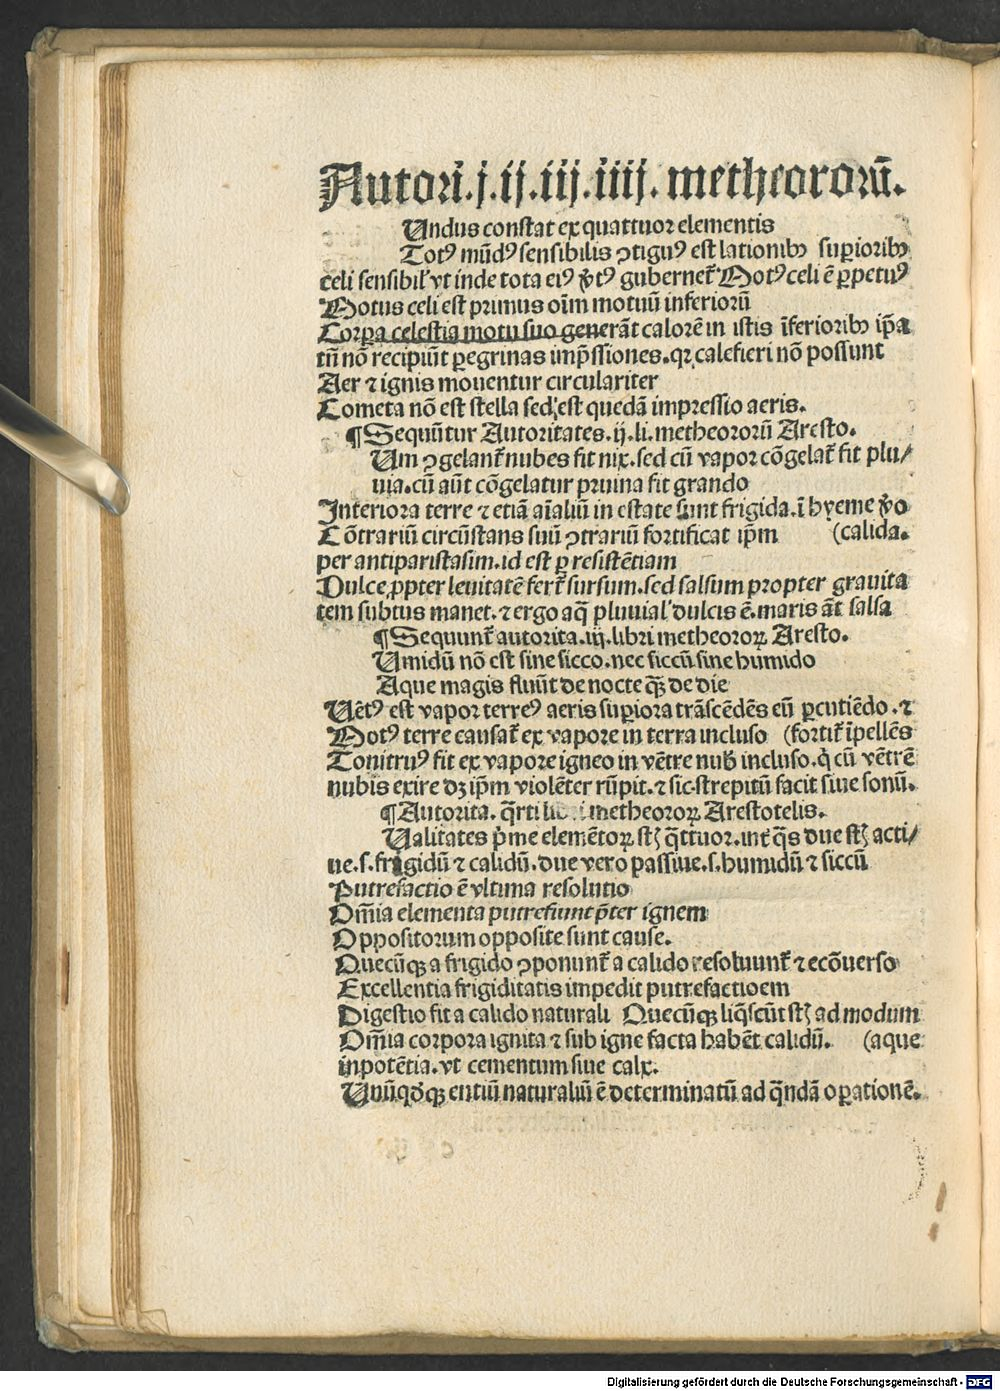 Autori̅.j.ij.iij.iiij. metheororū.
Undus constat ex quattuor elementis
Totꝰ mūdꝰ sensibilis ꝯtiguꝰ est lationibꝫ suꝑioribꝫ
celi sensibil' vt inde tota eiꝰ v̓tꝰ gubernet᷑ Motꝰ celi ē ꝑpetuꝰ
Motus celi est primus oīm motuū inferiorū
Corꝑa celestia motu suo generāt calorē in istis īferioribꝫ ip̄a
tū nō recipiūt ꝑegrinas imp̄ssiones.qꝛ calefieri nō possunt
Aer ⁊ ignis mouentur circulariter
Cometa nō est stella sed est quedā impressio aeris.
¶ Sequūtur Autoritates.ij.li.metheororū Aresto.
Um ꝯgelant᷑ nubes fit nix.sed cū vapor cōgelat᷑ fit plu/
uia.cū aūt cōgelatur pruina fit grando
Interiora terre ⁊ etiā aīaliū in estate sunt frigida.ī hyeme v̓o
Cōtrariū circūstans suū ꝯtrariū fortificat ip̄m (calida.
per antiparistasim.id est ꝑ resistētiam
Dulce ꝓpter leuitatē fert᷑ sursum.sed salsum propter grauita
tem subtus manet.⁊ ergo aq̄ pluuial' dulcis ē.maris āt salsa
¶ Sequunt᷑ autorita.iij.libri metheoroꝝ Aresto.
Umidū nō est sine sicco.nec siccū sine humido
Aque magis fluūt de nocte qꝫ̄ de die
Uētꝰ est vapor terreꝰ aeris suꝑiora trāscēdēs eū ꝑcutiēdo.⁊
Motꝰ terre causat᷑ ex vapore in terra incluso (fortit᷑ īpellēs
Tonitruꝰ fit ex vapore igneo in vētre nub̄ incluso.q̇ cū vētrē
nubis exire dꝫ ip̄m violēter rūpit.⁊ sic strepitū facit siue sonū.
¶ Autorita. q̄rti libri metheoroꝝ Arestotelis.
Ualitates p̄me elemētoꝝ st̄ꝫ q̄ttuor.int᷑ q̄s due st̄ꝫ acti/
ue.s.frigidū ⁊ calidū.due vero passiue.s.humidū ⁊ siccū
Putrefactio ē vltima resolutio
Om̄ia elementa putrefiunt p̄ter ignem
Oppositorum opposite sunt cause.
Quecūqꝫ a frigido ꝯponunt᷑ a calido resoluunt᷑ ⁊ ecōuerso
Excellentia frigiditatis impedit putrefactioem
Digestio fit a calido naturali Quecūqꝫ liq̄scūt st̄ꝫ ad modum
Om̄ia corpora ignita ⁊ sub igne facta habēt calidū. (aque
in potētia.vt cementum siue calx.
Unūqd̓qꝫ entiū naturaliū ē determinatū ad q̄ndā oꝑationē.
Digitalisierung gefördert durch die Deutsche Forschungsgemeinschaft - DFG